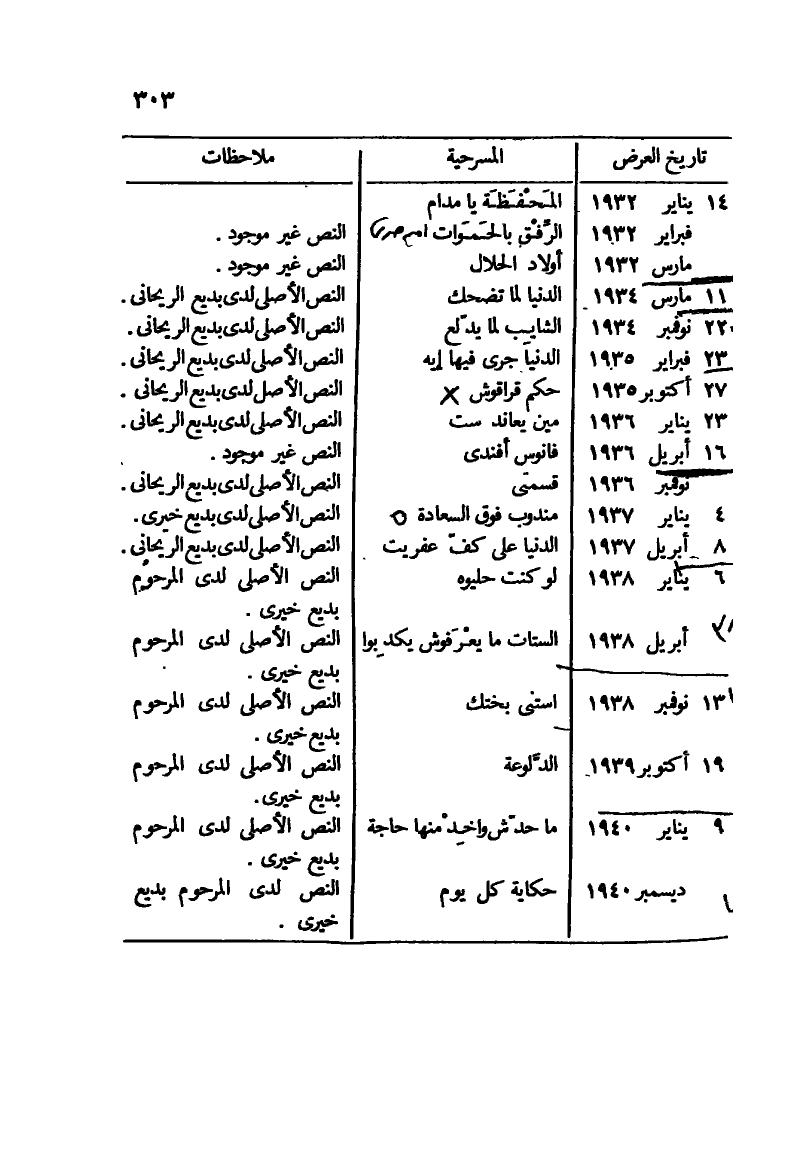 ٣٠٣
تاريخ العرض المسرحية ملاحظات
١٤ يناير ١٩٣٢ المَحْفَظَة يا مدام
فبراير ١٩٣٢ الرِّفْق بالحَمَوات النص غير موجود .
مارس ١٩٣٢ أولاد الحلال النص غير موجود .
١١ مارس ١٩٣٤ الدنيا لما تضحك النص الأصلى لدى بديع الريحانى .
٢٢ نوفمبر ١٩٣٤ الشايب لما يدّلع النص الأصلى لدى بديع الريحانى .
٢٣ فبراير ١٩٣٥ الدنيا جرى فيها إيه النص الأصلى لدى بديع الريحانى .
٢٧ أكتوبر ١٩٣٥ حكم قراقوش X النص الأصل لدى بديع الريحانى .
٢٣ يناير ١٩٣٦ مين يعاند ست النص الأصلى لدى بديع الريحانى .
١٦ أبريل ١٩٣٦ فانوس أفندى النص غير موجود .
نوفمبر ١٩٣٦ قسمتى النص الأصلى لدى بديع الريحانى .
٤ يناير ١٩٣٧ مندوب فوق السعادة النص الأصلى لدى بديع خيرى .
٨ أبريل ١٩٣٧ الدنيا على كفّ عفريت النص الأصلى لدى بديع الريحانى .
٦ يناير ١٩٣٨ لو كنت حليوه النص الأصلى لدى المرحوم
بديع خيرى .
أبريل ١٩٣٨ الستات ما يعْرَفوش يكدبوا النص الأصلى لدى المرحوم
بديع خيرى .
١٣ نوفمبر ١٩٣٨ استنى بختك النص الأصلى لدى المرحوم
بديع خيرى .
١٩ أكتوبر ١٩٣٩ الدَّلوعة النص الأصلى لدى المرحوم
بديع خيرى .
٩ يناير ١٩٤٠ ما حدّش واخِدْ منها حاجة النص الأصلى لدى المرحوم
بديع خيرى .
ديسمبر ١٩٤٠ حكاية كل يوم النص لدى المرحوم بديع
خيرى .